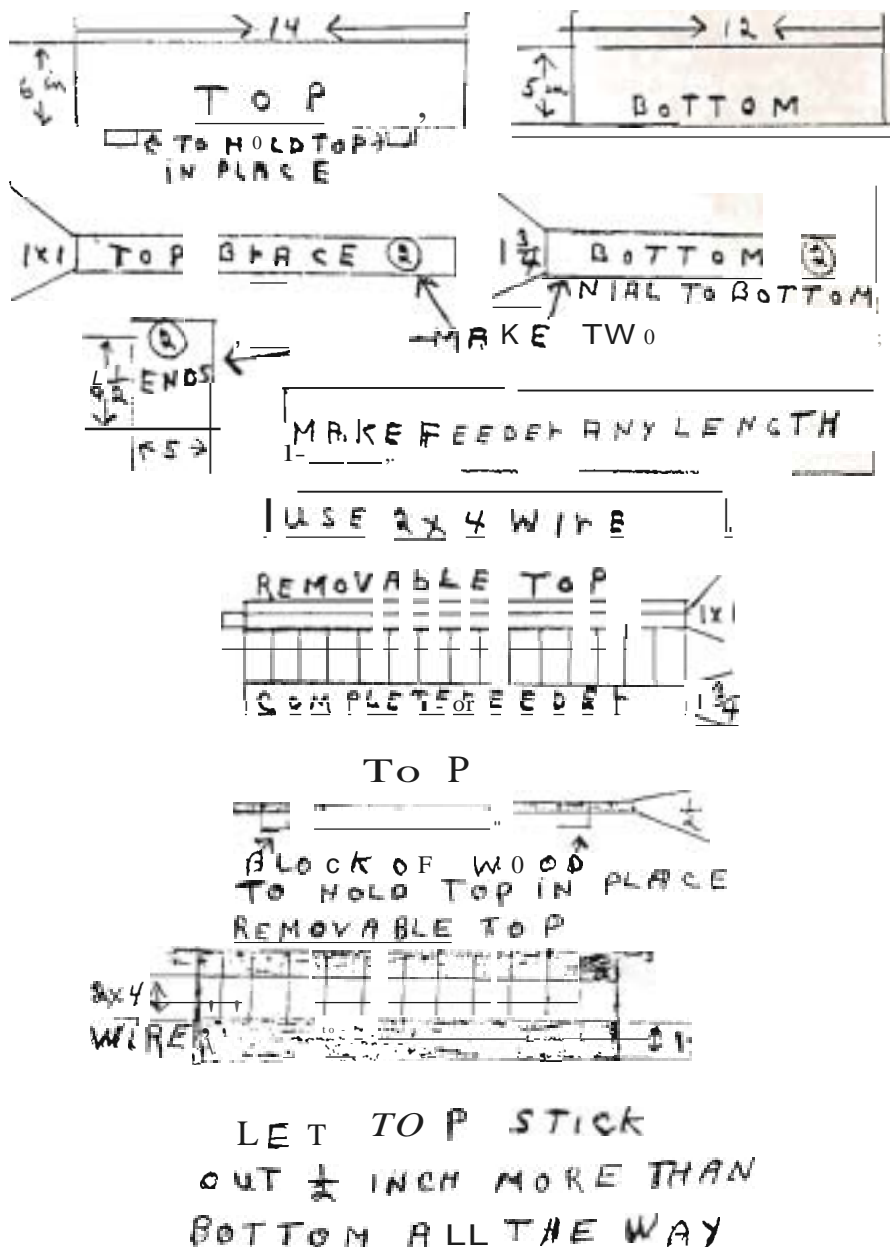 14
12
6 in
TOP
5 in
BOTTOM
TO HOLD TOP
IN PLACE
1x1
TOP BRACE 2
1 3/4
BOTTOM 2
NIAL TO BOTTOM
MAKE TWO
2
ENDS
5
MAKE FEEDER ANY LENGTH
USE 2x4 WIRE
REMOVABLE TOP
1x1
1 3/4
TOP
1/2
BLOCK OF WOOD
TO HOLD TOP IN PLACE
REMOVABLE TOP
2x4
WIRE
LET TOP STICK
OUT 1/2 INCH MORE THAN
BOTTOM ALL THE WAY